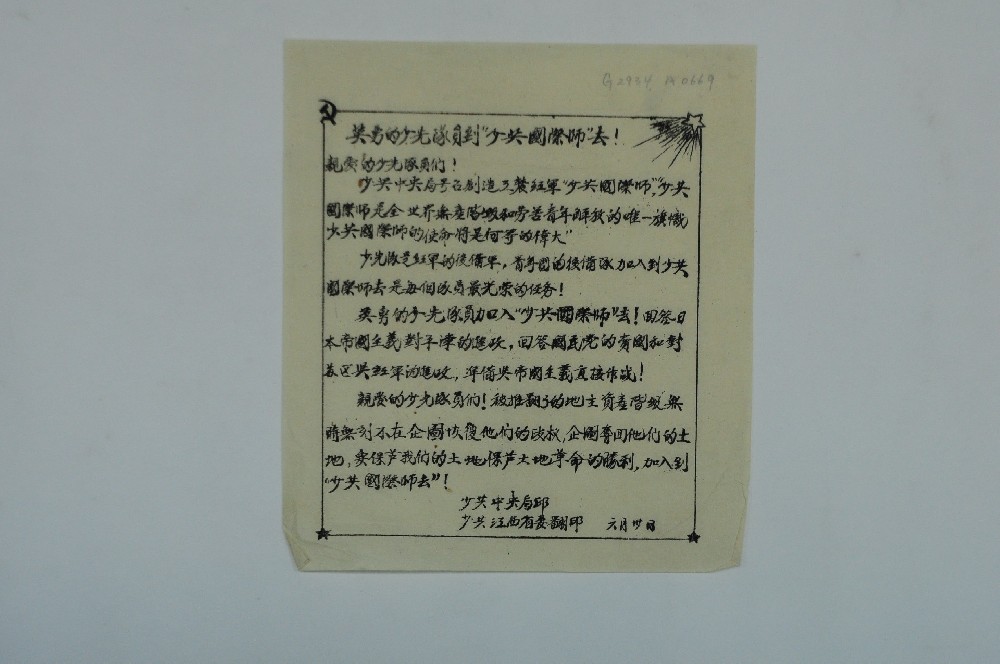 G2934 A0669
英勇的少先隊員到"少共國際師"去!
親愛的少先隊員们!
少共中央局号召創造工農紅軍"少共國際師","少共
國際師是全世界無產階級和労苦青年解放的唯一旗幟
少共國際師的使命将是何等的偉大"
少先隊是紅軍的後備軍,青年團的後備隊加入到少共
國際師去是每個隊員最光榮的任务!
英勇的少先隊員加入"少共國際師"去!回答日
本帝國主義對平津的進攻,回答國民党的賣國和對
苏区與紅軍的進攻,準備與帝國主義直接作战!
親愛的少先隊員们!被推翻了的地主資產階級無
時無刻不在企圖恢復他们的政权,企圖奪回他们的土
地,要保芦我们的土地保芦土地革命的勝利,加入到
"少共國際師去"!
少共中央局印
少共江西省委翻印 六月 日